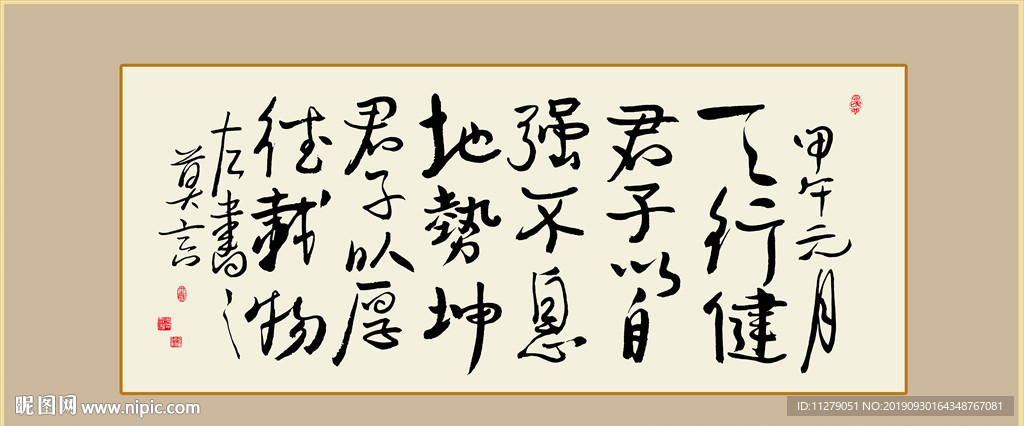 甲午元月
天行健
君子以自
强不息
地勢坤
君子以厚
德載物
左書
莫言
昵图网 www.nipic.com
ID:11279051 NO:20190930164348767081